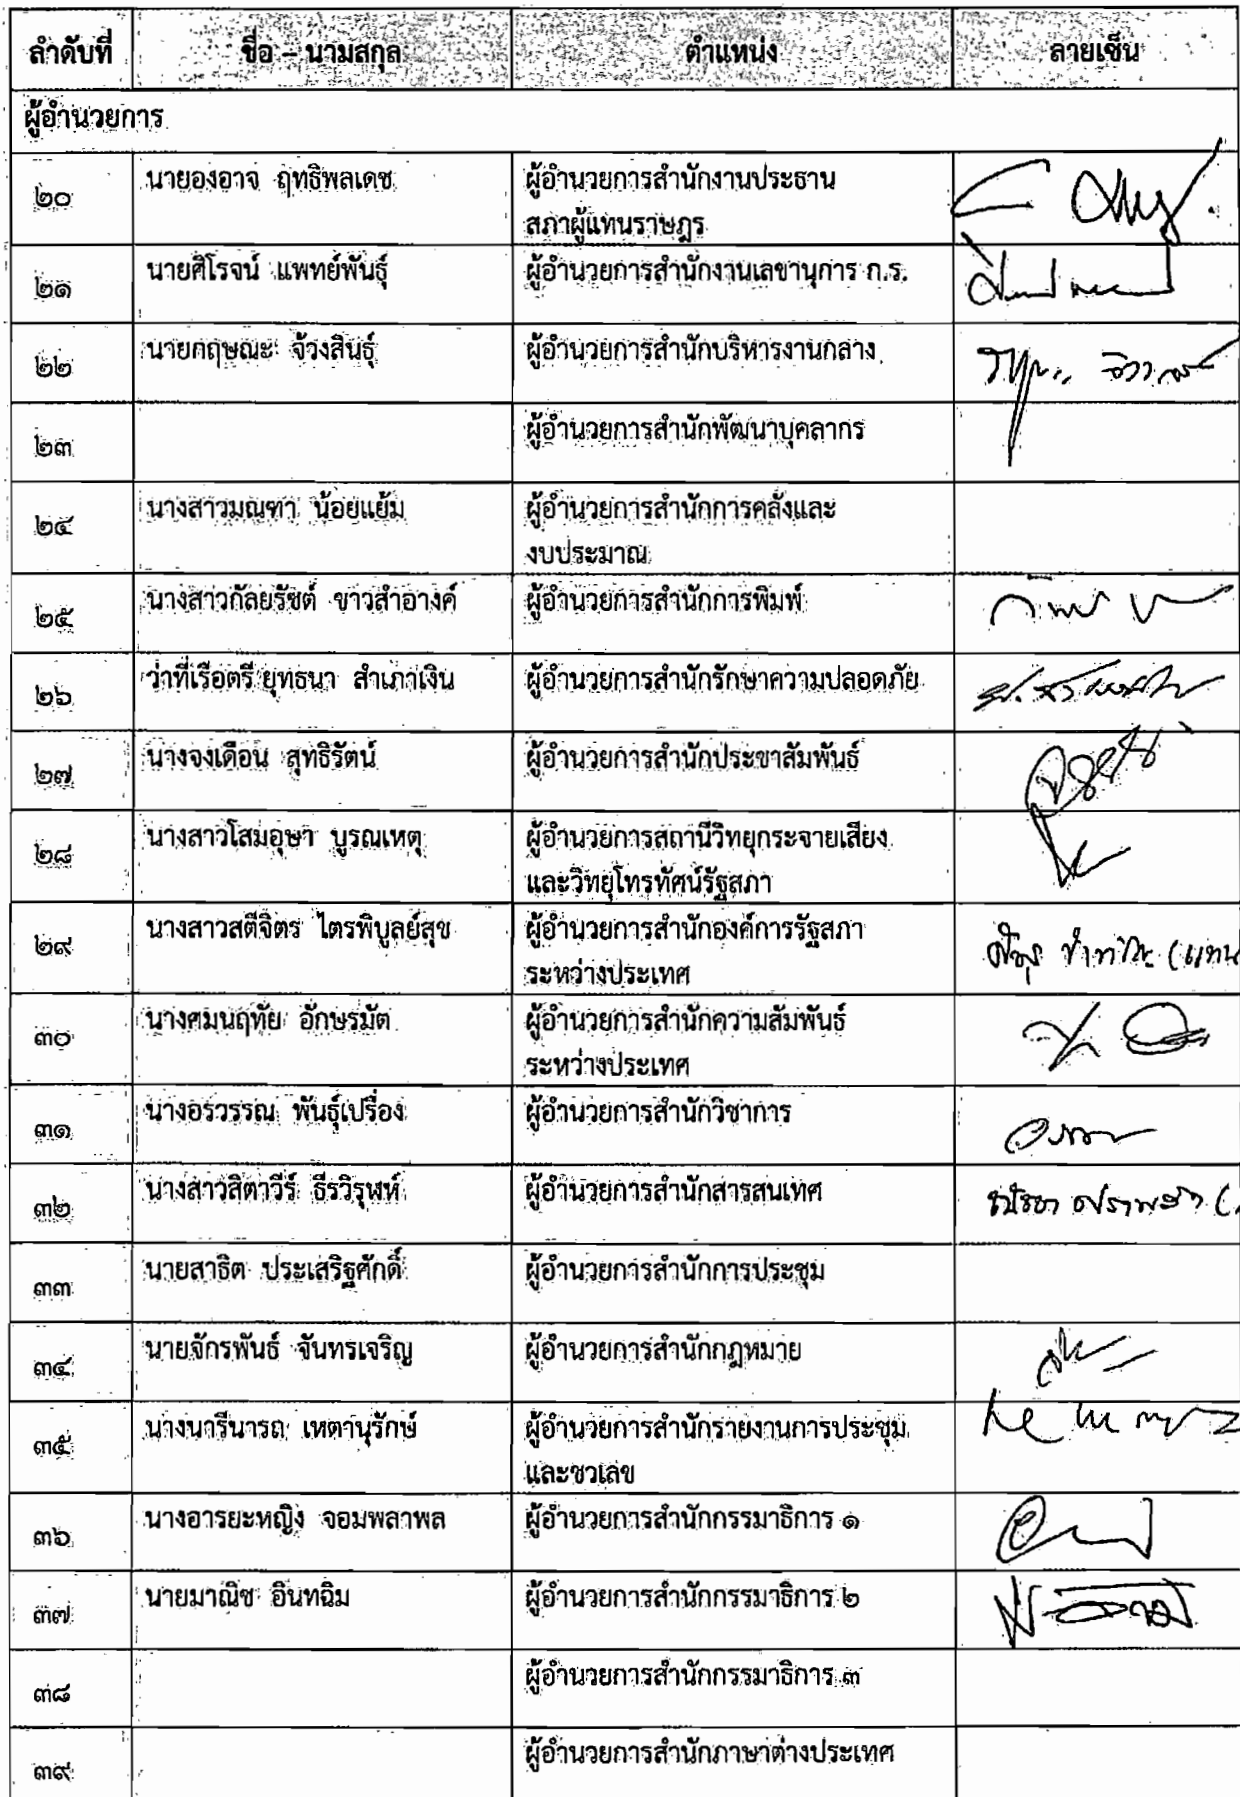 ลำดับที่ ชื่อ – นามสกุล ตำแหน่ง ลายเซ็น
ผู้อำนวยการ
๒๐ นายองอาจ ฤทธิพลเดช ผู้อำนวยการสำนักงานประธาน
สภาผู้แทนราษฎร
๒๑ นายศิโรจน์ แพทย์พันธุ์ ผู้อำนวยการสำนักงานเลขานุการ ก.ร.
๒๒ นายกฤษณะ จ้วงสินธุ์ ผู้อำนวยการสำนักบริหารงานกลาง
๒๓ ผู้อำนวยการสำนักพัฒนาบุคลากร
๒๔ นางสาวมณฑา น้อยแย้ม ผู้อำนวยการสำนักการคลังและ
งบประมาณ
๒๕ นางสาวกัลยรัชต์ ขาวสำอางค์ ผู้อำนวยการสำนักการพิมพ์
๒๖ ว่าที่เรือตรี ยุทธนา สำเภาเงิน ผู้อำนวยการสำนักรักษาความปลอดภัย
๒๗ นางจงเดือน สุทธิรัตน์ ผู้อำนวยการสำนักประชาสัมพันธ์
๒๘ นางสาวโสมอุษา บูรณเหตุ ผู้อำนวยการสถานีวิทยุกระจายเสียง
และวิทยุโทรทัศน์รัฐสภา
๒๙ นางสาวสตีจิตร ไตรพิบูลย์สุข ผู้อำนวยการสำนักองค์การรัฐสภา
ระหว่างประเทศ (แทน
๓๐ นางศมนฤทัย อักษรมัต ผู้อำนวยการสำนักความสัมพันธ์
ระหว่างประเทศ
๓๑ นางอรวรรณ พันธุ์เปรื่อง ผู้อำนวยการสำนักวิชาการ
๓๒ นางสาวสิตาวีร์ ธีรวิรุฬห์ ผู้อำนวยการสำนักสารสนเทศ
๓๓ นายสาธิต ประเสริฐศักดิ์ ผู้อำนวยการสำนักการประชุม
๓๔ นายจักรพันธ์ จันทรเจริญ ผู้อำนวยการสำนักกฎหมาย
๓๕ นางนารีนารถ เหตานุรักษ์ ผู้อำนวยการสำนักรายงานการประชุม
และชวเลข
๓๖ นางอารยะหญิง จอมพลาพล ผู้อำนวยการสำนักกรรมาธิการ ๑
๓๗ นายมาณิช อินทฉิม ผู้อำนวยการสำนักกรรมาธิการ ๒
๓๘ ผู้อำนวยการสำนักกรรมาธิการ ๓
๓๙ ผู้อำนวยการสำนักภาษาต่างประเทศ